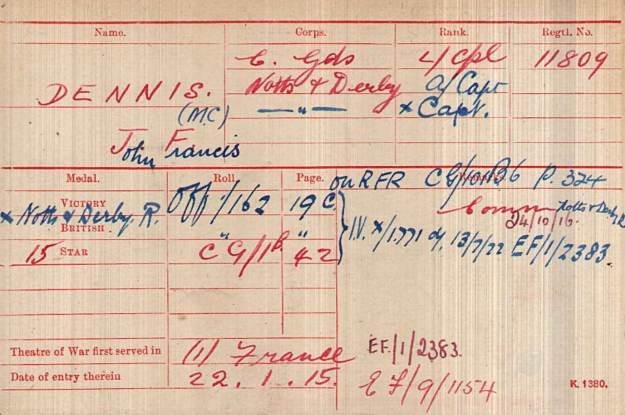 Name. Corps. Rank. Regtl. No.
C. Gds L/Cpl 11809
DENNIS. Notts & Derby a/Capt
(MC) —"— x Capt.
John Francis
Medal. Roll. Page.
on RFR CG/101B6 P. 324
VICTORY Off/162 19 C.
x Notts & Derby. R. Comm Notts & Derby R
24/10/16.
BRITISH " "
I.V. x/1771 d/ 13/7/22 EF/1/2383.
15 STAR CG/1B 42
Theatre of War first served in (1) France EF/1/2383.
Date of entry therein 22.1.15. EF/9/1154
K. 1380.